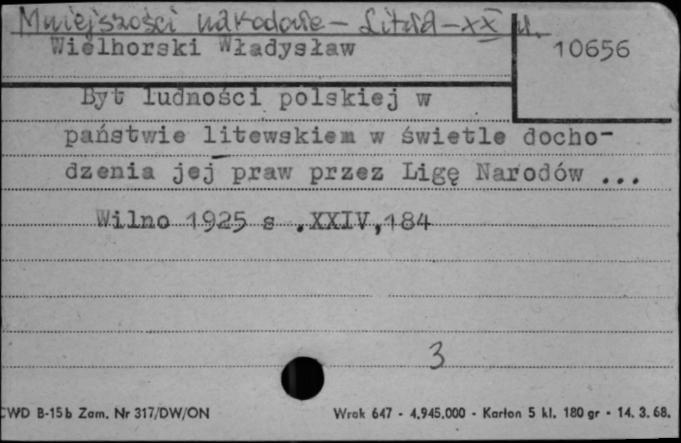 Mniejszości narodowe - Litwa - XX w.
Wielhorski Władysław
10656
Byt ludności polskiej w
państwie litewskiem w świetle docho-
dzenia jej praw przez Ligę Narodów ...
Wilno 1925 s .XXIV,184
3
CWD B-15b Zam. Nr 317/DW/ON
Wrak 647 - 4.945.000 - Karton 5 kl. 180 gr - 14. 3. 68.